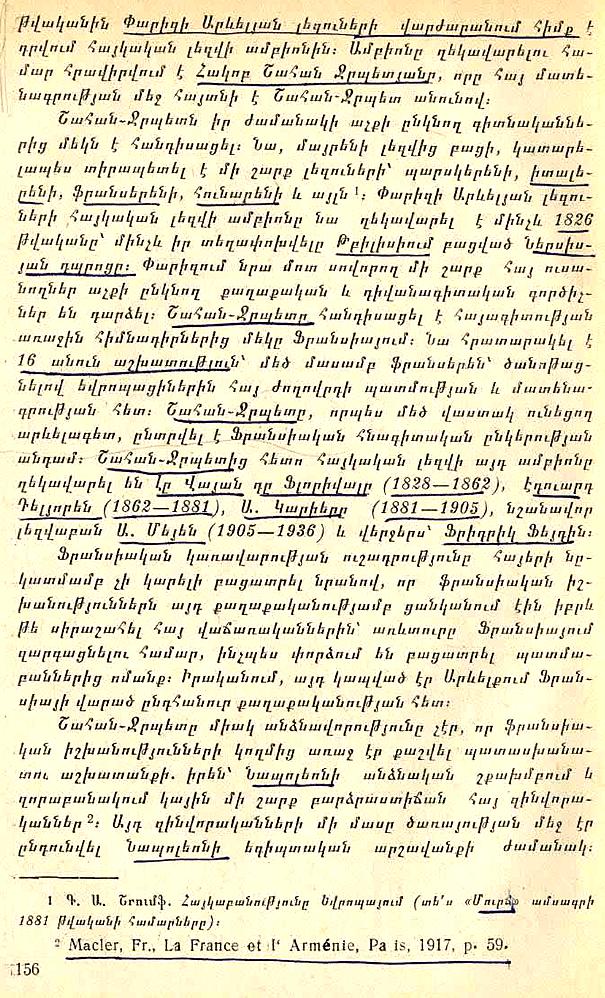 թվականին Փարիզի Արևելյան լեզուների վարժարանում հիմք է
դրվում հայկական լեզվի ամբիոնին։ Ամբիոնը ղեկավարելու հա-
մար հրավիրվում է Հակոբ Շահան Ջրպետյանը, որը հայ մատե-
նագրության մեջ հայտնի է Շահան-Ջրպետ անունով։
Շահան-Ջրպետն իր ժամանակի աչքի ընկնող գիտնականնե-
րից մեկն է հանդիսացել։ Նա, մայրենի լեզվից բացի, կատարե-
լապես տիրապետել է մի շարք լեզուների՝ պարսկերենի, իտալե-
րենի, ֆրանսերենի, հունարենի և այլն ¹։ Փարիզի Արևելյան լեզու-
ների հայկական լեզվի ամբիոնը նա ղեկավարել է մինչև 1826
թվականը՝ մինչև իր տեղափոխվելը Թբիլիսիում բացված Ներսիս-
յան դպրոցը։ Փարիզում նրա մոտ սովորող մի շարք հայ ուսա-
նողներ աչքի ընկնող քաղաքական և դիվանագիտական գործիչ-
ներ են դարձել։ Շահան-Ջրպետը հանդիսացել է հայագիտության
առաջին հիմնադիրներից մեկը Ֆրանսիայում։ Նա հրատարակել է
16 անուն աշխատություն՝ մեծ մասամբ ֆրանսերեն՝ ծանոթաց-
նելով եվրոպացիներին հայ ժողովրդի պատմության և մատենա-
գրության հետ։ Շահան-Ջրպետը, որպես մեծ վաստակ ունեցող
արևելագետ, ընտրվել է Ֆրանսիական հնագիտական ընկերության
անդամ։ Շահան-Ջրպետից հետո հայկական լեզվի այդ ամբիոնը
ղեկավարել են Լը Վայան դը Ֆլորիվալը (1828—1862), էդուարդ
Դելյորեն (1862—1881), Ա. Կարիերը (1881—1905), նշանավոր
լեզվաբան Ա. Մեյեն (1905—1936) և վերջերս՝ Ֆրիդրիկ Ֆեյդին։
Ֆրանսիական կառավարության ուշադրությունը հայերի նը-
կատմամբ չի կարելի բացատրել նրանով, որ ֆրանսիական իշ-
խանություններն այդ քաղաքականությամբ ցանկանում էին իբրև
թե սիրաշահել հայ վաճառականներին՝ առևտուրը Ֆրանսիայում
զարգացնելու համար, ինչպես փորձում են բացատրել պատմա-
բաններից ոմանք։ Իրականում, այդ կապված էր Արևելքում Ֆրան-
սիայի վարած ընդհանուր քաղաքականության հետ։
Շահան-Ջրպետը միակ անձնավորությունը չէր, որ ֆրանսիա-
կան իշխանությունների կողմից առաջ էր քաշվել պատասխանա-
տու աշխատանքի. իրեն՝ Նապոլեոնի անձնական շքախմբում և
զորաբանակում կային մի շարք բարձրաստիճան հայ զինվորա-
կաններ ²։ Այդ զինվորականների մի մասը ծառայության մեջ էր
ընդունվել Նապոլեոնի եգիպտական արշավանքի ժամանակ։
1 Գ. Ա. Շրումֆ. Հայկաբանությունը Եվրոպայում (տե՛ս «Մուրճ» ամսագրի
1881 թվականի համարները)։
² Macler, Fr., La France et l‘ Arménie, Pa is, 1917, p. 59.
156